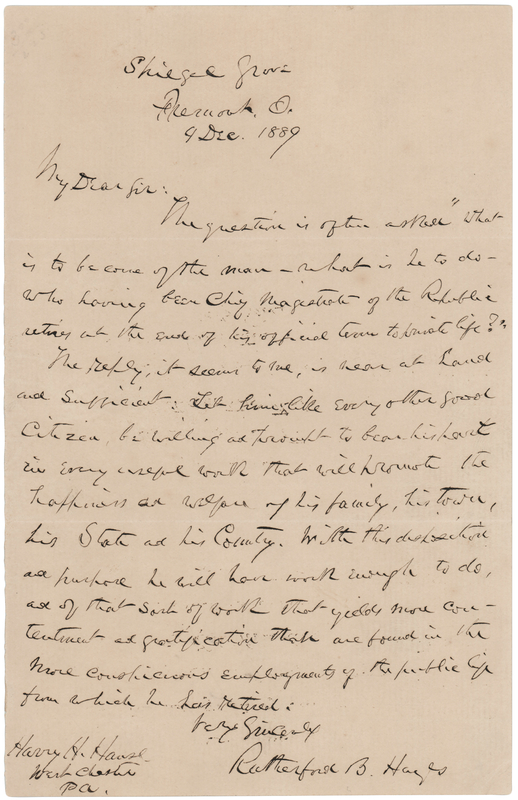 Spiegel Grove
Fremont, O.
9 Dec. 1889
My Dear Sir:
The question is often asked "What
is to become of the man — what is he to do —
who having been Chief Magistrate of the Republic
retires at the end of his official term to private life?"
The reply, it seems to me, is near at hand
and sufficient: Let him like every other good
Citizen, be willing ad prompt to bear his part
in every useful work that will promote the
happiness ad welfare of his family, his town,
his State ad his Country. With this disposition
ad purpose he will have work enough to do,
ad of that sort of work that yields more con-
tentment ad gratification than are found in the
more conspicuous employments of the public life
from which he has retired.
Very Sincerely
Rutherford B. Hayes
Harry H. Hause
West Chester
Pa.